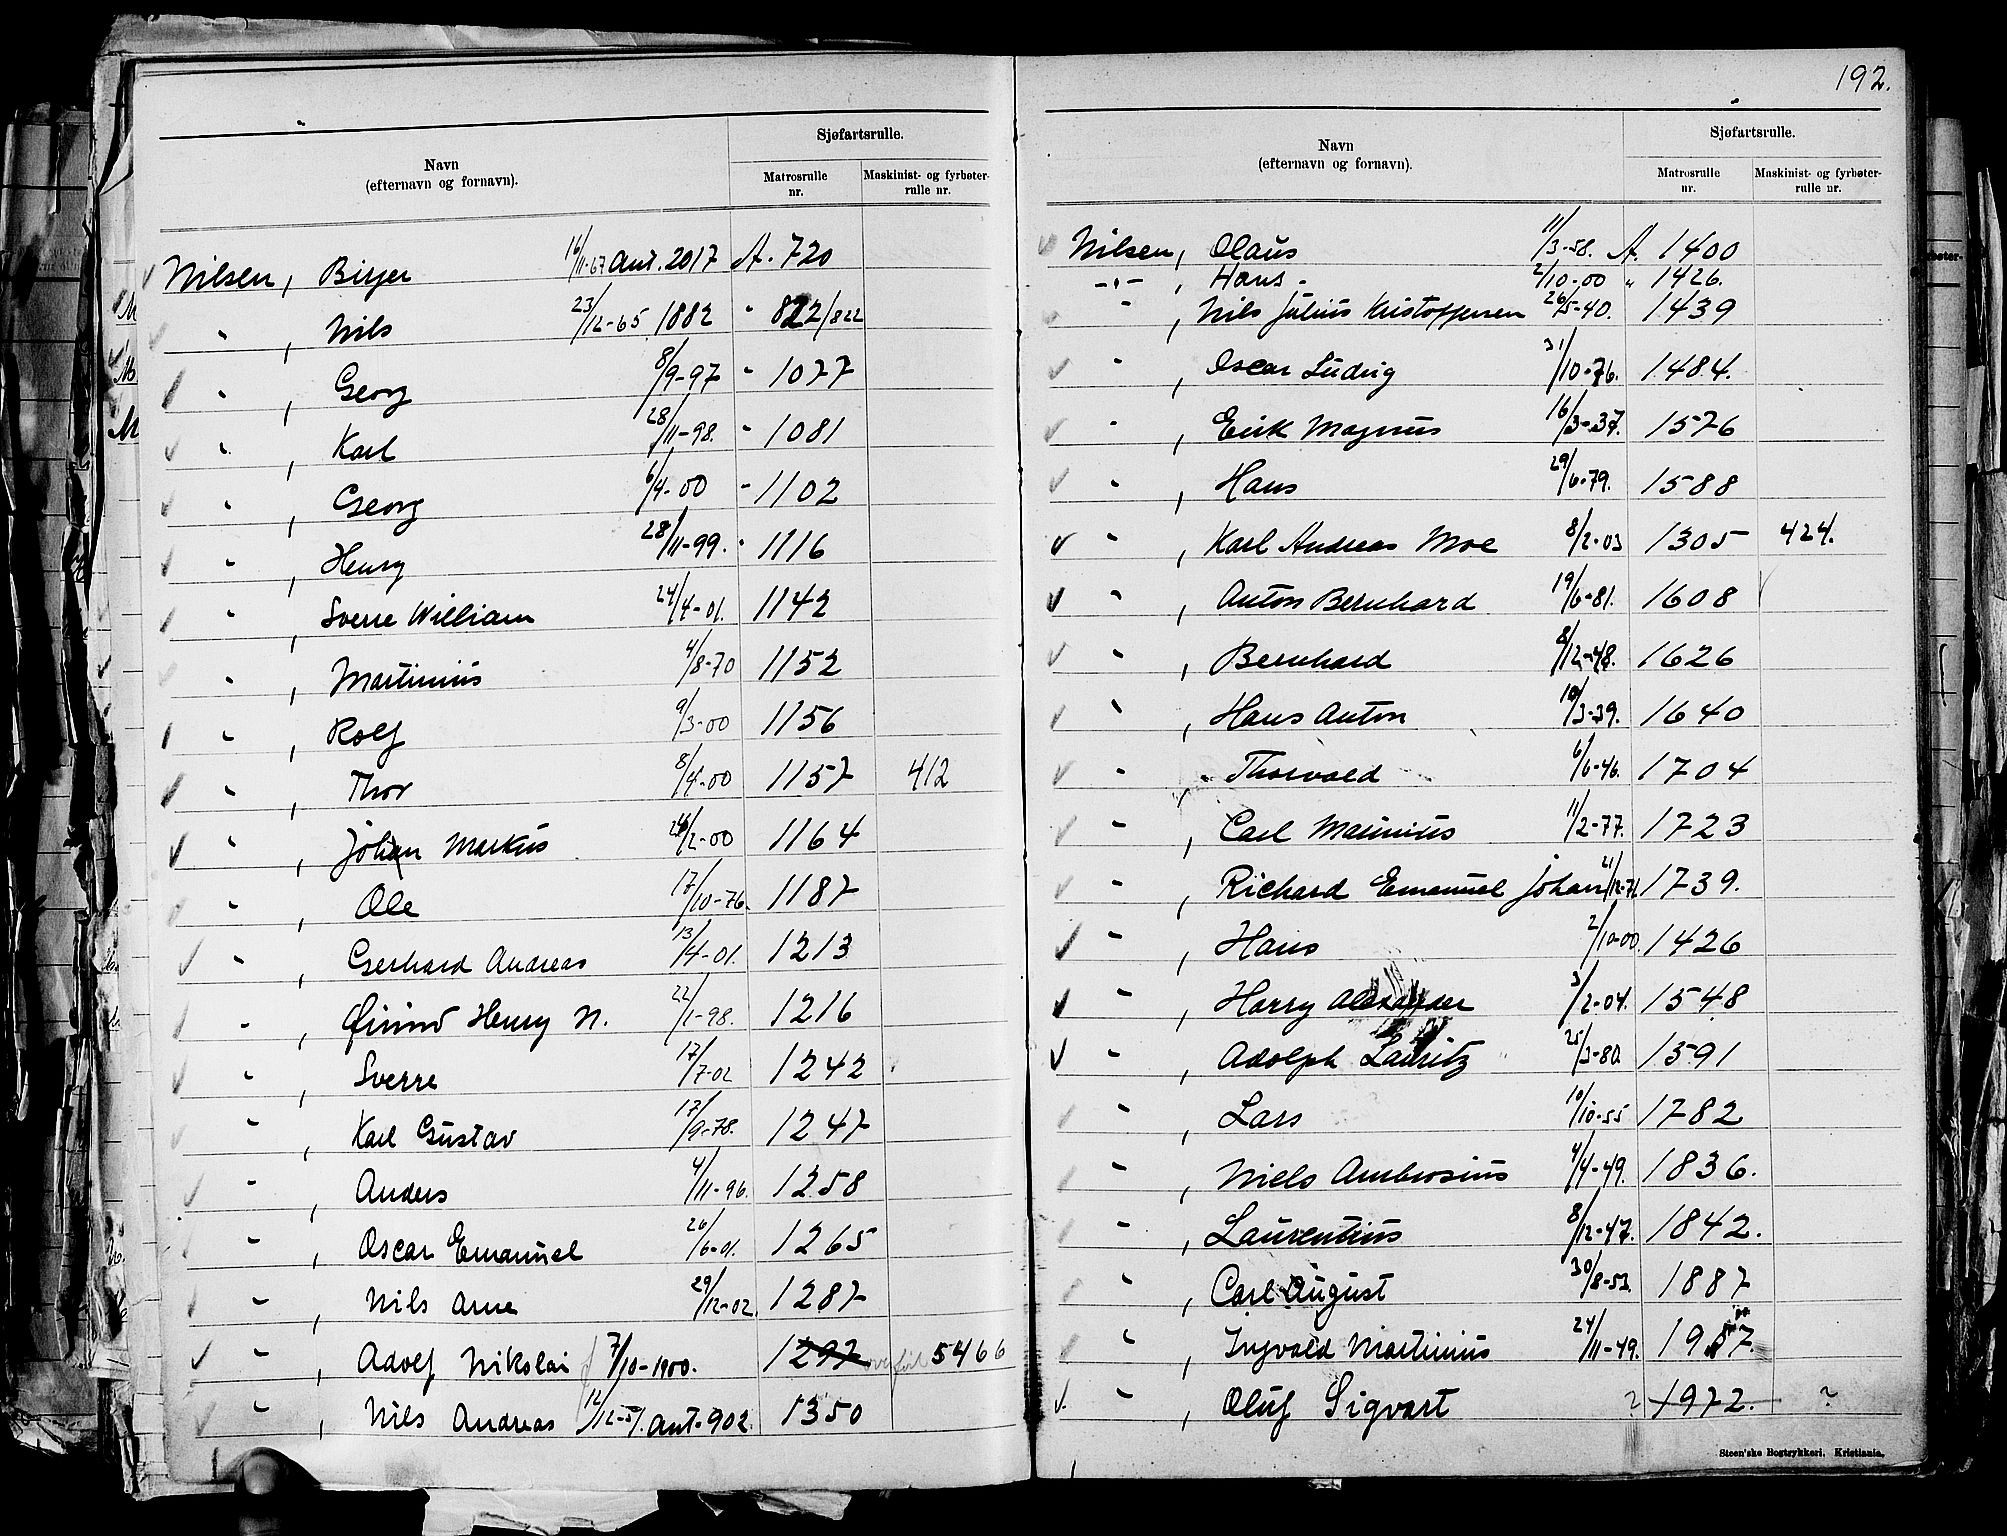 Navn
(efternavn og fornavn).
Sjøfartsrulle.
Matrosrulle
nr.
Maskinist- og fyrbøter-
rulle nr.
Nilsen, Birger 16/11-67 Ant. 2017 A. 720
" , Nils 23/12-65 1882 " 822/822
" , Georg 8/9-97 " 1077
" , Karl 28/11-98. " 1081
" , Georg 6/4-00 " 1102
" , Henry 28/11-99. " 1116
" , Sverre William 24/4-01. 1142
" , Martinius 4/8-70 1152
" , Rolf 9/3-00 1156
" , Thor 8/4-00 1157 412
" , Johan Markus 24/2-00 1164
" , Ole 17/10-76. 1187
" , Gerhard Andreas 13/4-01. 1213
" , Øivind Henry N. 22/1-98. 1216
" , Sverre 17/7-02 1242
" , Karl Gustav 17/9-78. 1247
" , Anders 4/11-96. 1258
" , Oscar Emanuel 26/6-01. 1265
" , Nils Arne 29/12-02. 1287
" , Adolf Nikolai f 7/10-1900. 1297 overført 5466
" , Nils Andreas 12/12-51. Ant. 902. 1350
192.
Navn
(efternavn og fornavn).
Sjøfartsrulle.
Matrosrulle
nr.
Maskinist- og fyrbøter-
rulle nr.
Nilsen, Olaus 11/3-58. A. 1400
-"- , Hans - 2/10-00 " 1426.
" , Nils Julius Kristoffersen 26/5-40. 1439
" , Oscar Ludvig 31/10-76. 1484.
" , Erik Magnus 16/3-37. 1576
" , Hans 29/6-79. 1588
" , Karl Andreas Moe 8/2-03 1305 424.
" , Anton Bernhard 19/6-81. 1608
" , Bernhard 8/12-48. 1626
" , Hans Anton 10/3-39. 1640
" , Thorvald 6/6-46. 1704
" , Carl Marinius 11/2-77. 1723
" , Richard Emanuel Johan 21/12-71. 1739.
" , Hans 2/10-00. 1426
" , Harry Alexander 3/2-04. 1548
" , Adolph Lauritz 25/3-80. 1591
" , Lars 10/10-55 1782
" , Niels Ambrosius 4/4-49. 1836.
" , Laurentius 8/12-47. 1842.
" , Carl August 30/8-53. 1887
" , Ingvald Martinius 24/11-49. 1957.
" , Oluf Sigvart ? 1972. ?
Steen'ske Bogtrykkeri. Kristiania.